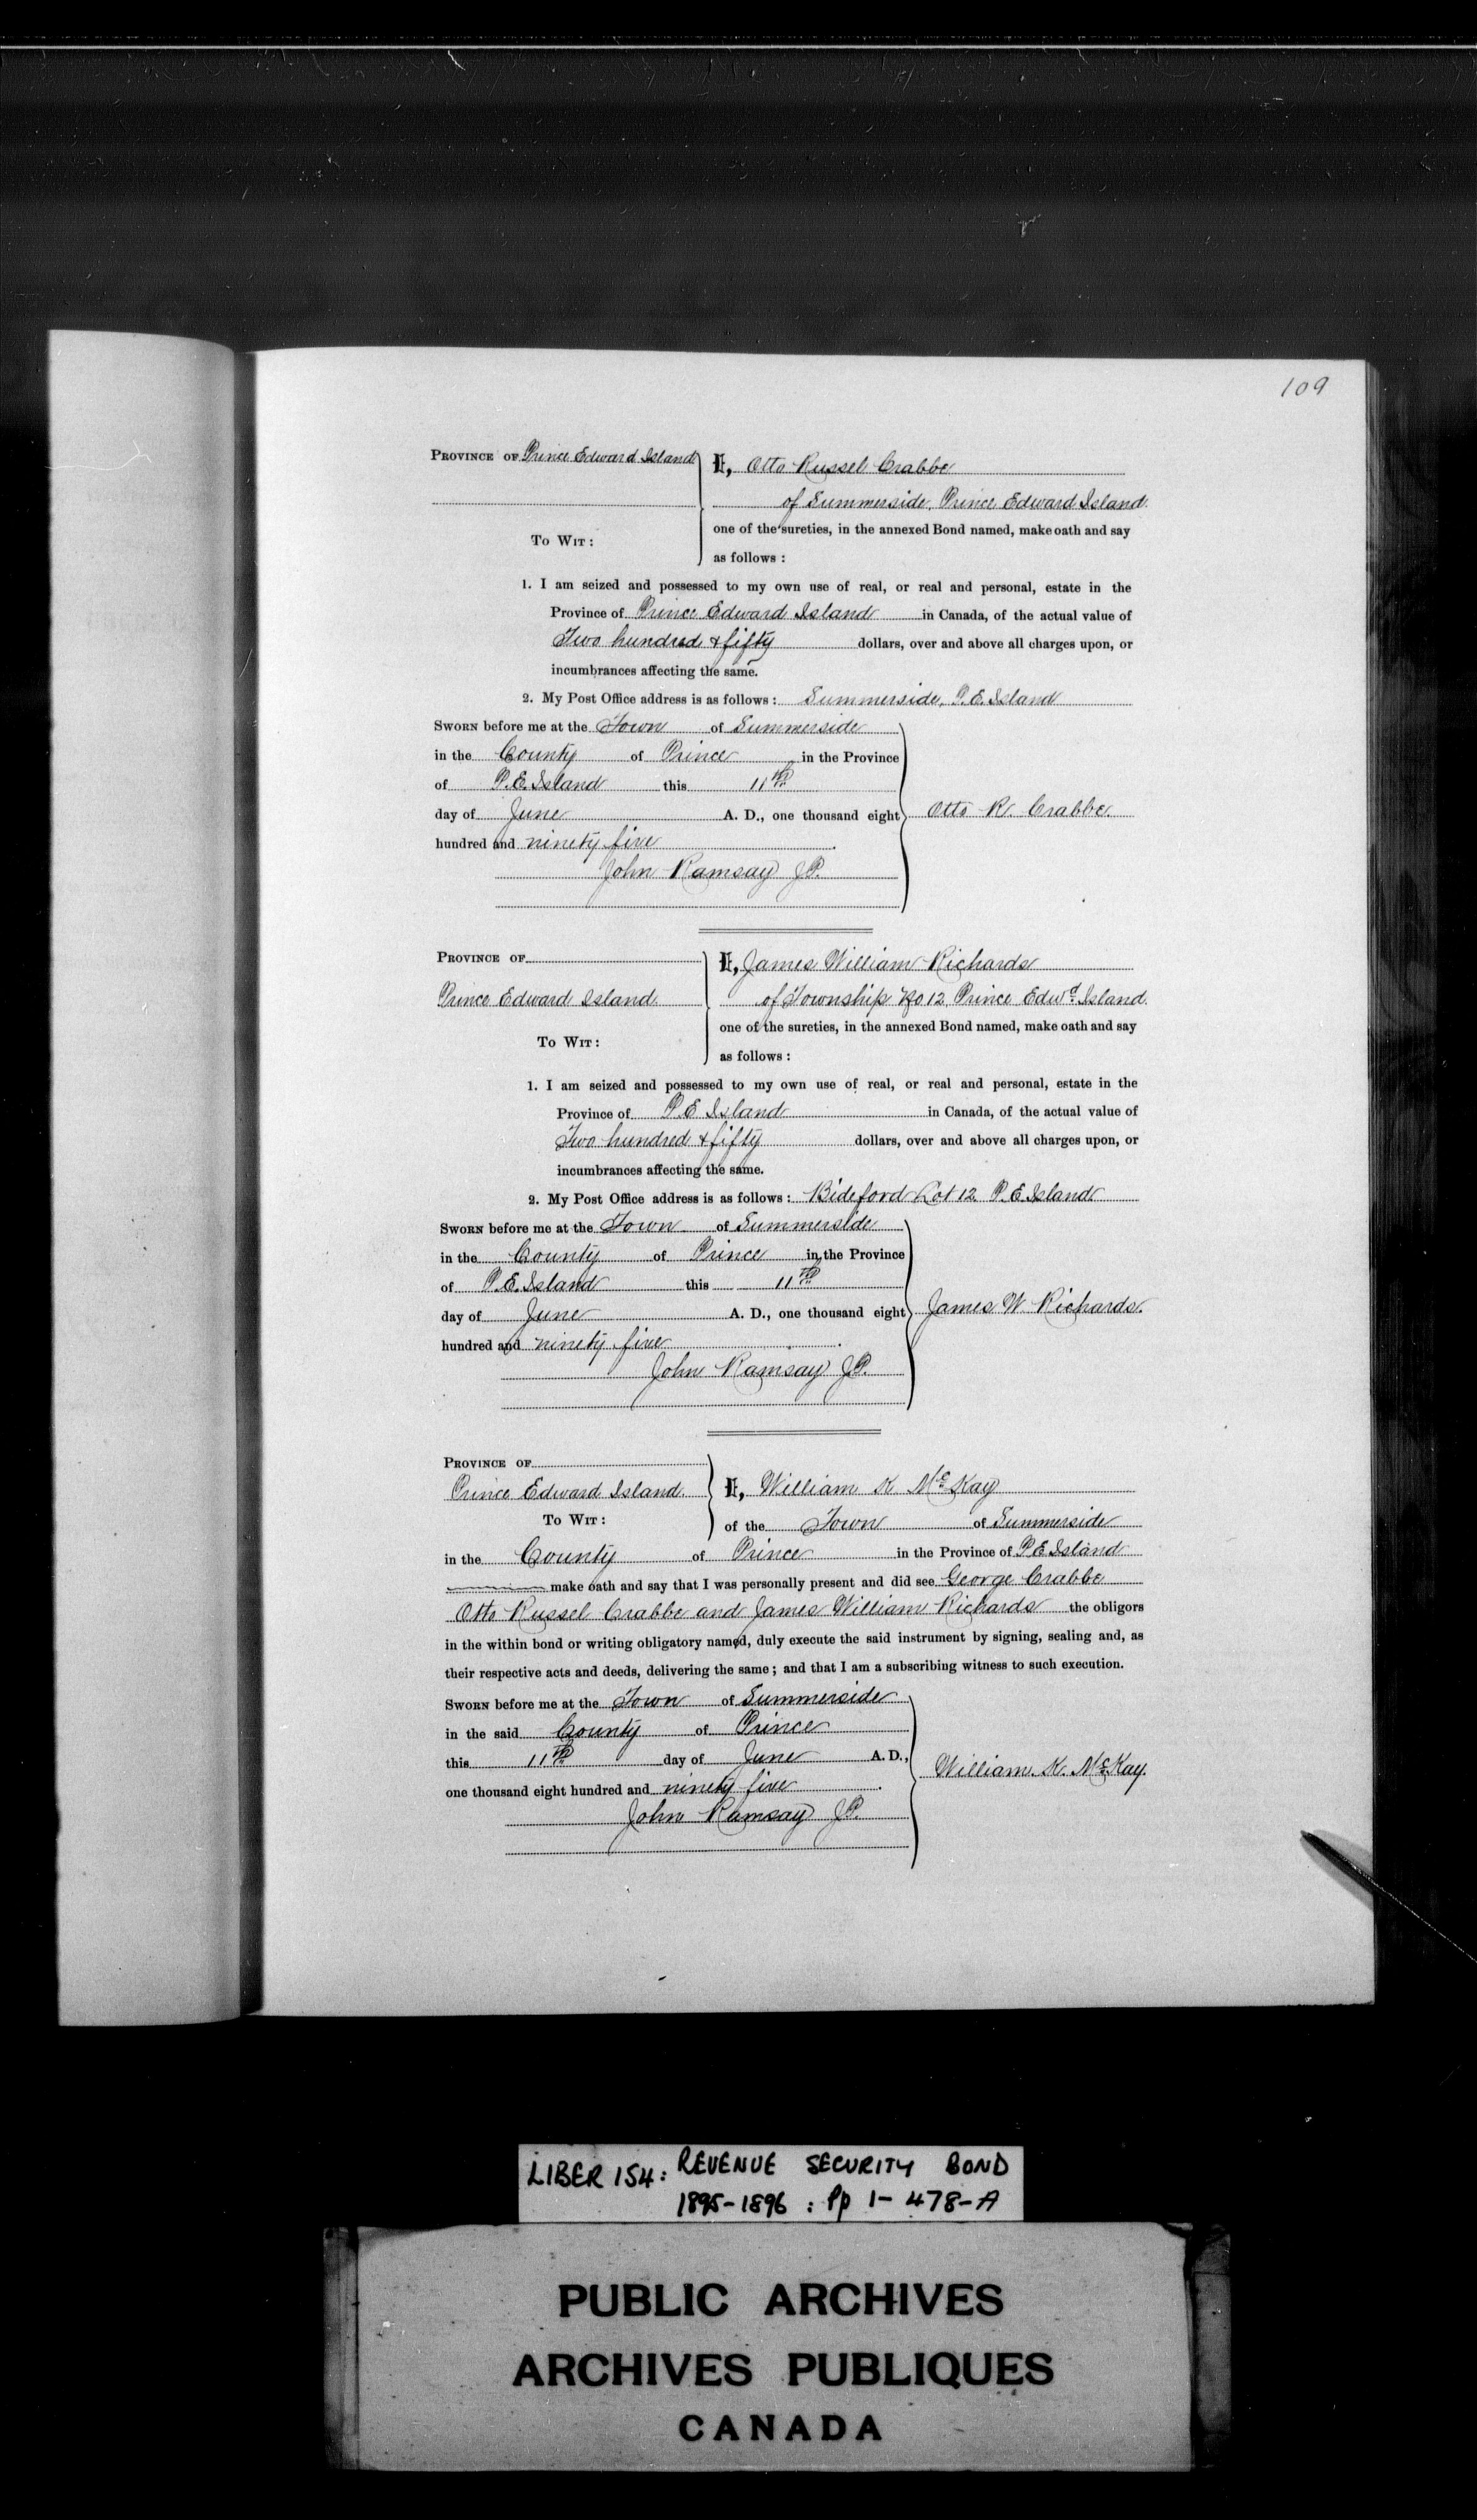 109
PROVINCE OF Prince Edward Island
I, Otto Russel Crabbe
of Summerside, Prince Edward Island.
one of the sureties, in the annexed Bond named, make oath and say
TO WIT:
as follows:
1. I am seized and possessed to my own use of real, or real and personal, estate in the
Province of Prince Edward Island in Canada, of the actual value of
Two hundred & fifty dollars, over and above all charges upon, or
incumbrances affecting the same.
2. My Post Office address is as follows: Summerside, P. E. Island
SWORN before me at the Town of Summerside
in the County of Prince in the Province
of P. E. Island this 11th
day of June A. D., one thousand eight
Otto R. Crabbe.
hundred and ninety five.
John Ramsay JP.
PROVINCE OF
Prince Edward Island.
I, James William Richards
of Township No 12, Prince Edwd. Island.
one of the sureties, in the annexed Bond named, make oath and say
TO WIT:
as follows:
1. I am seized and possessed to my own use of real, or real and personal, estate in the
Province of P. E. Island in Canada, of the actual value of
Two hundred & fifty dollars, over and above all charges upon, or
incumbrances affecting the same.
2. My Post Office address is as follows: Bideford Lot 12 P. E. Island
SWORN before me at the Town of Summerside
in the County of Prince in the Province
of P. E. Island this 11th
day of June A. D., one thousand eight
James W. Richards.
hundred and ninety five.
John Ramsay JP.
PROVINCE OF
Prince Edward Island.
I, William K McKay
TO WIT:
of the Town of Summerside
in the County of Prince in the Province of P. E Island
make oath and say that I was personally present and did see George Crabbe
Otto Russel Crabbe and James William Richards the obligors
in the within bond or writing obligatory named, duly execute the said instrument by signing, sealing and, as
their respective acts and deeds, delivering the same; and that I am a subscribing witness to such execution.
SWORN before me at the Town of Summerside
in the said County of Prince
this 11th day of June A. D.,
William. K. McKay.
one thousand eight hundred and ninety five.
John Ramsay JP.
LIBER 154: REVENUE SECURITY BOND
1895-1896 : Pp 1-478-A
PUBLIC ARCHIVES
ARCHIVES PUBLIQUES
CANADA